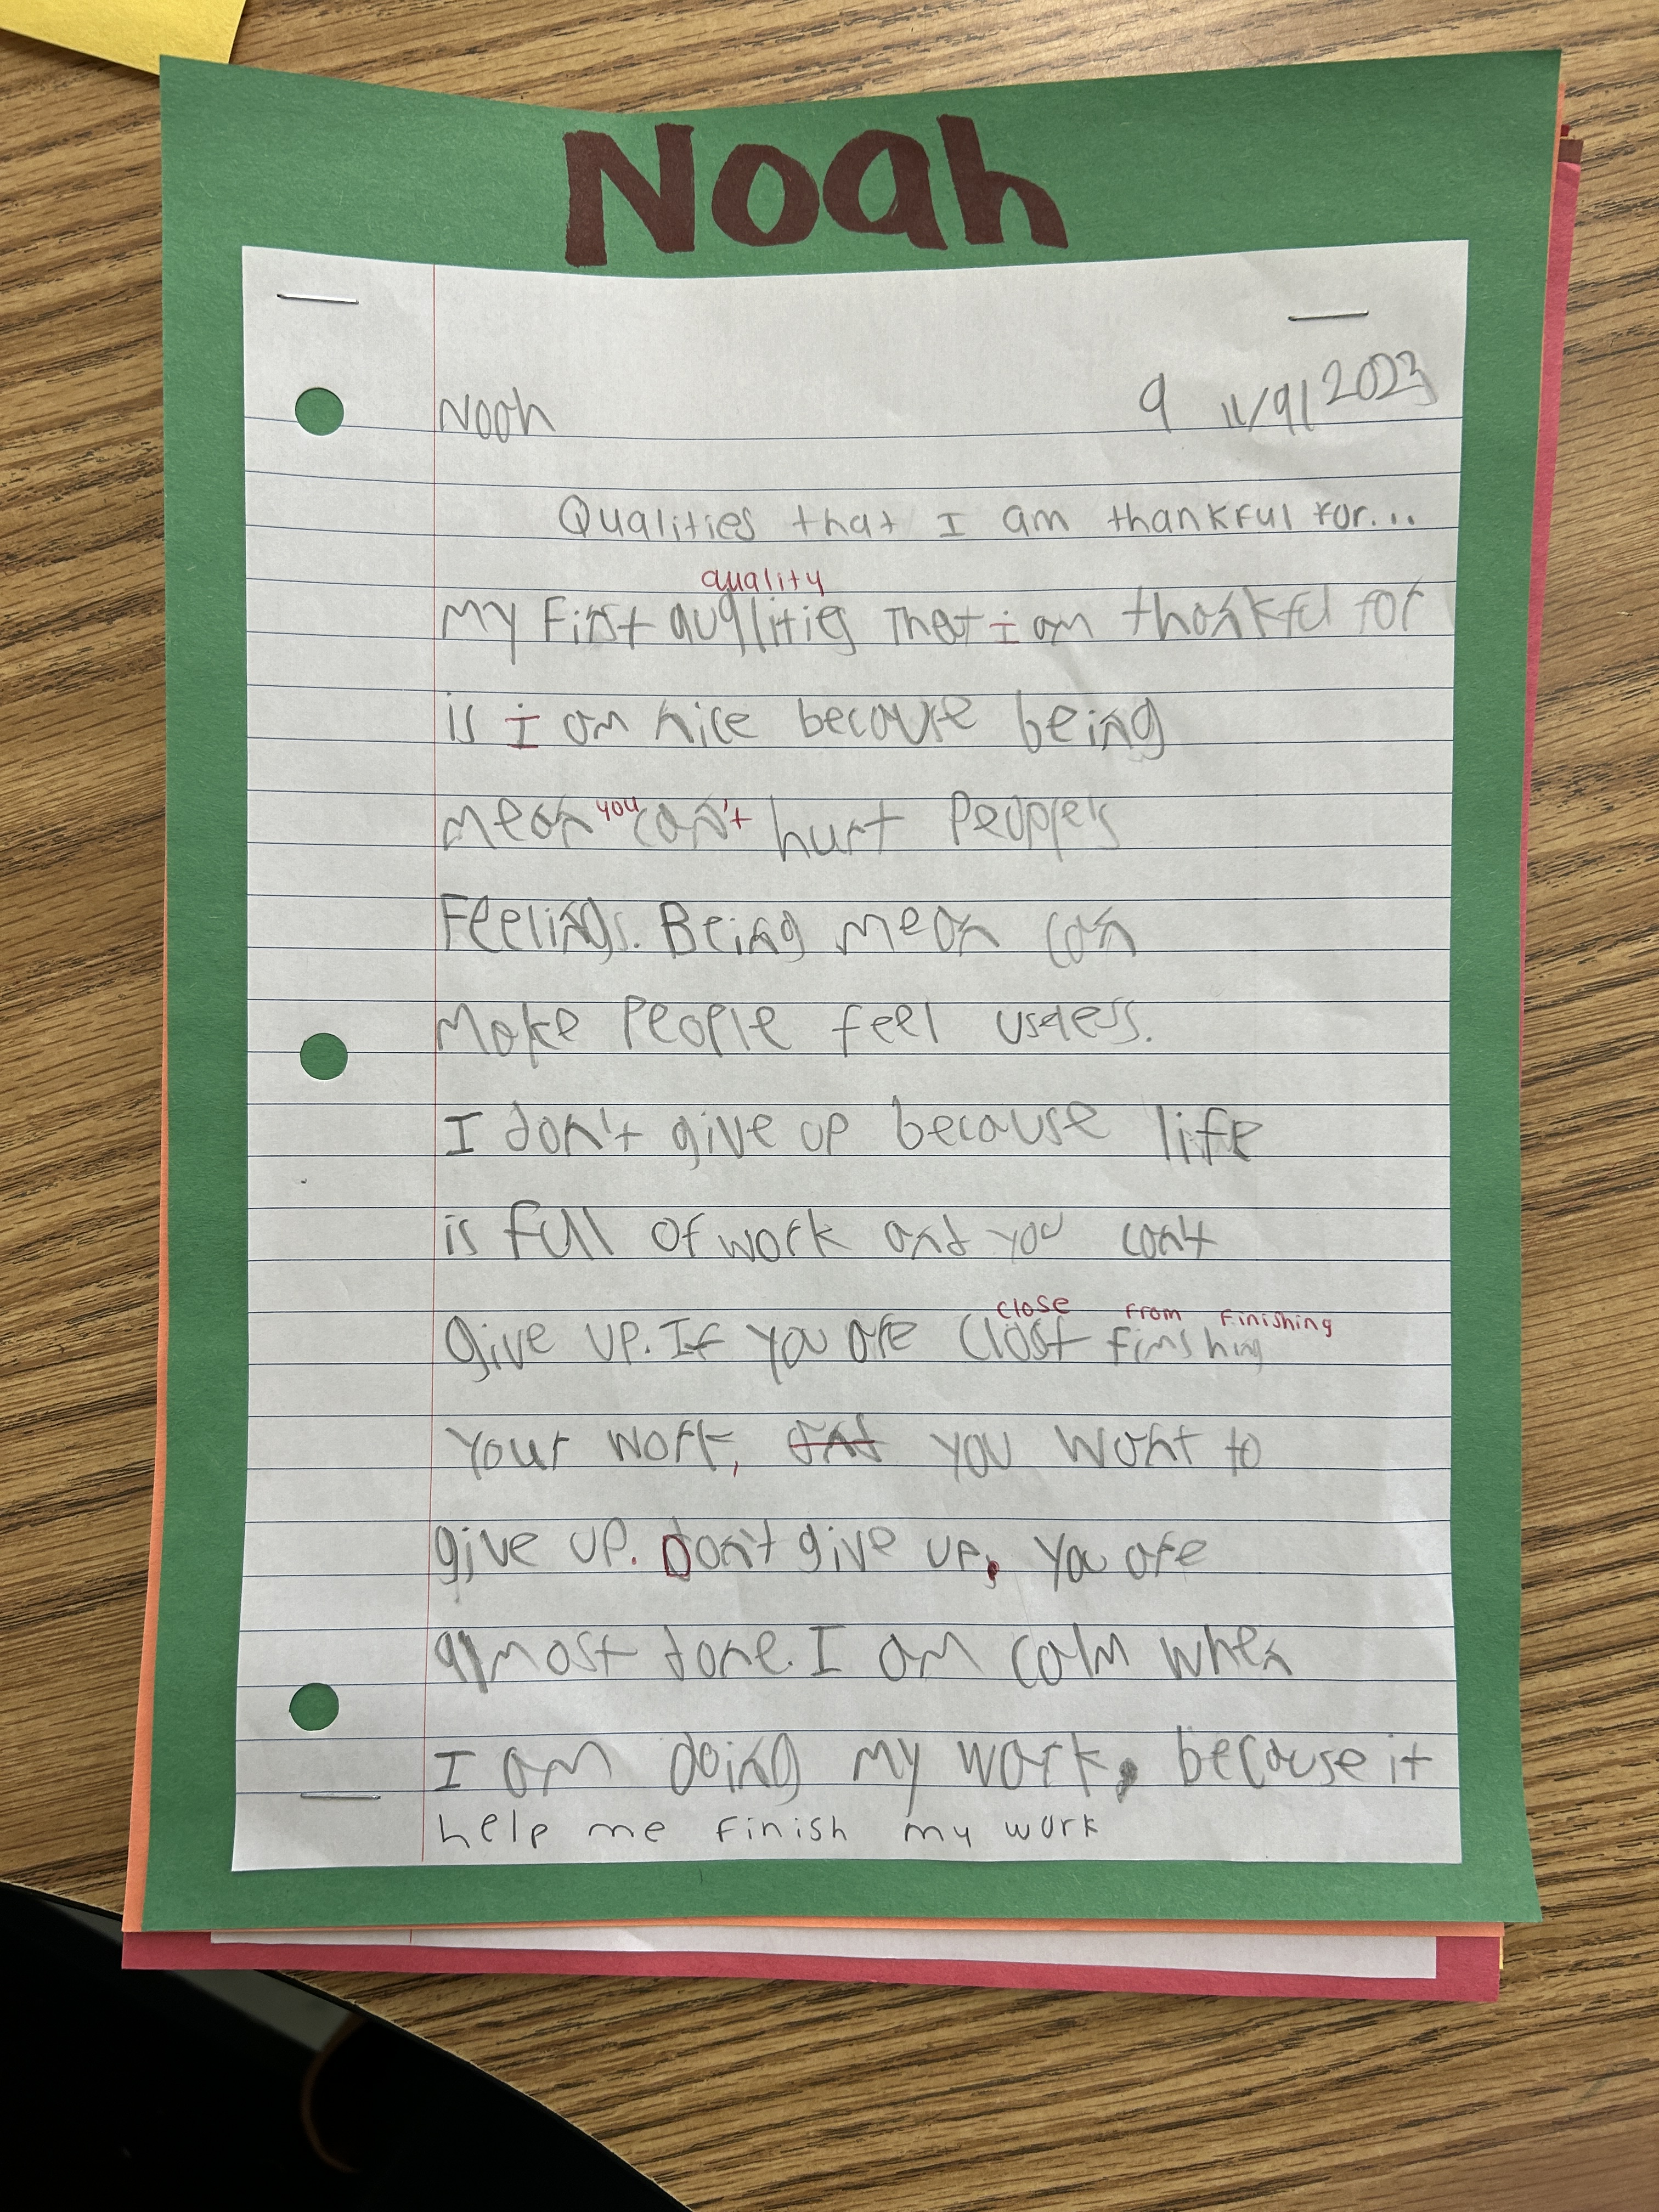 Noah
Noah 9 11/9/2023
Qualities that I am thankful for...
quality
My First qualities That i am thankful for
is i am nice because being
mean you can't hurt People's
Feelings. Being mean can
Make People feel useless.
I don't give up because life
is full of work and you can't
close from finishing
give up. If you are clost finshing
Your work, and you want to
give up. Don't give up, you are
almost done. I am calm when
I am doing my work, because it
help me finish my work